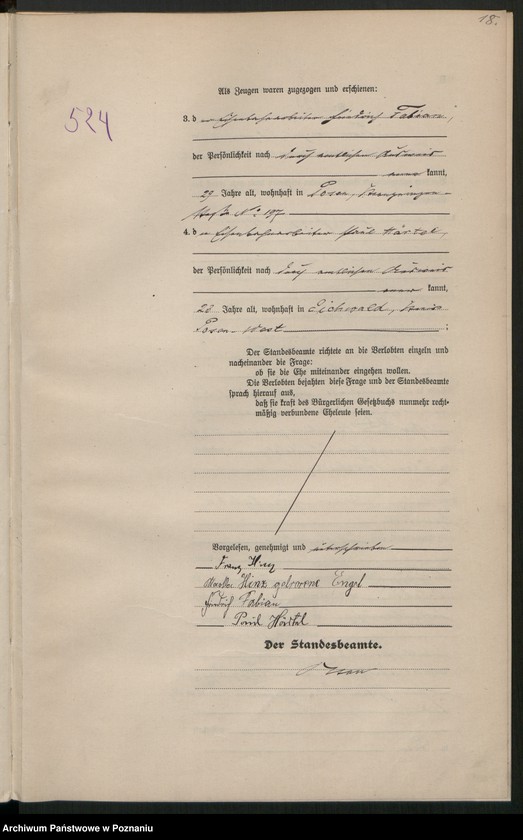 18.
524
Als Zeugen waren zugezogen und erschienen:
3. der Eisenbahnarbeiter Friedrich Fabian,
der Persönlichkeit nach durch amtlichen Ausweis
kannt,
29 Jahre alt, wohnhaft in Posen,
straße No. 197
4. der Eisenbahnarbeiter Paul Härtel,
der Persönlichkeit nach durch amtlichen Ausweis
kannt,
28 Jahre alt, wohnhaft in Eichwald, Kreis
Posen-West ;
Der Standesbeamte richtete an die Verlobten einzeln und
nacheinander die Frage:
ob sie die Ehe miteinander eingehen wollen.
Die Verlobten bejahten diese Frage und der Standesbeamte
sprach hierauf aus,
daß sie kraft des Bürgerlichen Gesetzbuchs nunmehr recht-
mäßig verbundene Eheleute seien.
Vorgelesen, genehmigt und unterschrieben
Franz Hinz
Hinz geborene Engel
Friedrich Fabian
Paul Härtel
Der Standesbeamte.
Archiwum Państwowe w Poznaniu